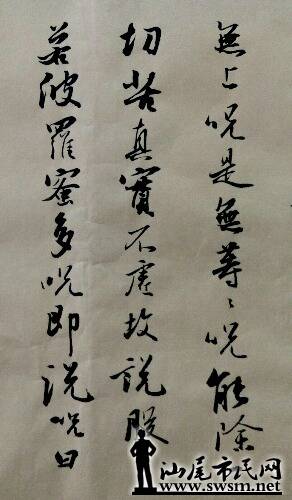 無上呪是無等〻呪能除
切苦真實不虛故說般
若波羅蜜多呪即說呪曰
汕尾市民网
www.swsm.net